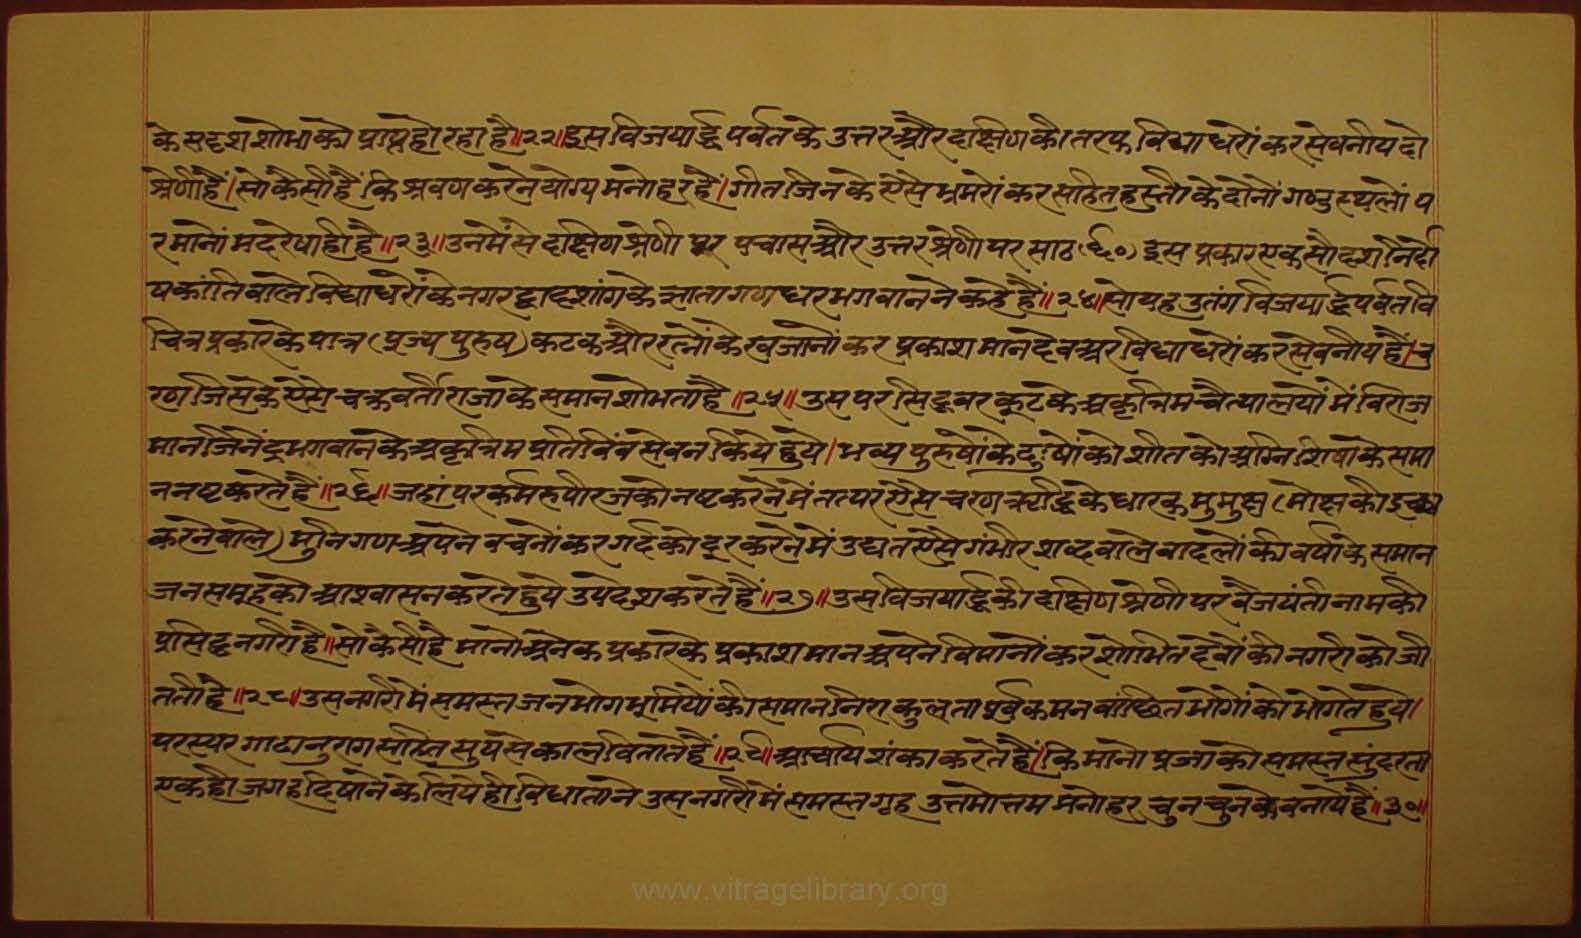 के सदृश शोभा को प्राप्त हो रहा है॥२२॥इस विजयार्द्ध पर्वत के उत्तर और दक्षिण की तरफ विद्याधरों कर सेवनीय दो
श्रेणी हैं। सो कैसी हैं कि श्रवण करने योग्य मनोहर हैं। गीत जिन के ऐसे भ्रमरों कर सहित हस्ती के दोनों गण्डस्थलों प
र मानों मद रेषा ही है॥२३॥ उनमें से दक्षिण श्रेणी पर पचास और उत्तर श्रेणी पर साठ (६०) इस प्रकार एक सौ दश निर्दो
ष कांति वाले विद्याधरों के नगर द्वादशांग के ज्ञाता गणधर भगवान ने कहे हैं॥२४॥ सो यह उतंग विजयार्द्ध पर्वत वि
चित्र प्रकार के पात्र (पूज्य पुरुष) कटक और रत्नों के खजानों कर प्रकाशमान देव अर विद्याधरों कर सेवनीय हैं। च
रण जिसके ऐसे चक्रवर्ती राजा के समान शोभता है॥२५॥ उस पर सिद्धवर कूट के अकृत्रिम चैत्यालयों में विराज
मान जिनेंद्र भगवान के अकृत्रिम प्रतिबिंब सेवन किये हुये। भव्य पुरुषों के दुःषों को शीत को अग्नि शिषा के समा
न नष्ट करते हैं॥२६॥ जहां पर कर्म रुपी रज को नष्ट करने में तत्पर ऐसे चरण ऋद्धि के धारक मुमुक्षु (मोक्ष की इच्छा
करने वाले) मुनिगण अपने वचनों कर गर्द को दूर करने में उद्यत ऐसे गंभीर शब्द वाले बादलों की वर्षा के समान
जन समूह को आश्वासन करते हुये उपदेश करते हैं॥२७॥ उस विजयार्द्ध की दक्षिण श्रेणी पर वैजयंती नाम की
प्रसिद्ध नगरी है॥ सो कैसी है मानो अनेक प्रकार के प्रकाशमान अपने विमानों कर शोभित देवों की नगरी को जी
तती है॥२८॥ उस नगरी में समस्त जन भोग भूमियों की समान निराकुलता पूर्वक मन वांछित भोगों को भोगते हुये।
परस्पर गाढानुराग सहित सुष से काल वितातें हैं॥२९॥ आचार्य शंका करते हैं। कि मानो प्रजा को समस्त सुंदरता
एक ही जगह दिषाने के लिये ही विधाता ने उस नगरी में समस्त गृह उत्तमोत्तम मनोहर चुन चुन के बनाये हैं॥३०॥
www.vitragelibrary.org